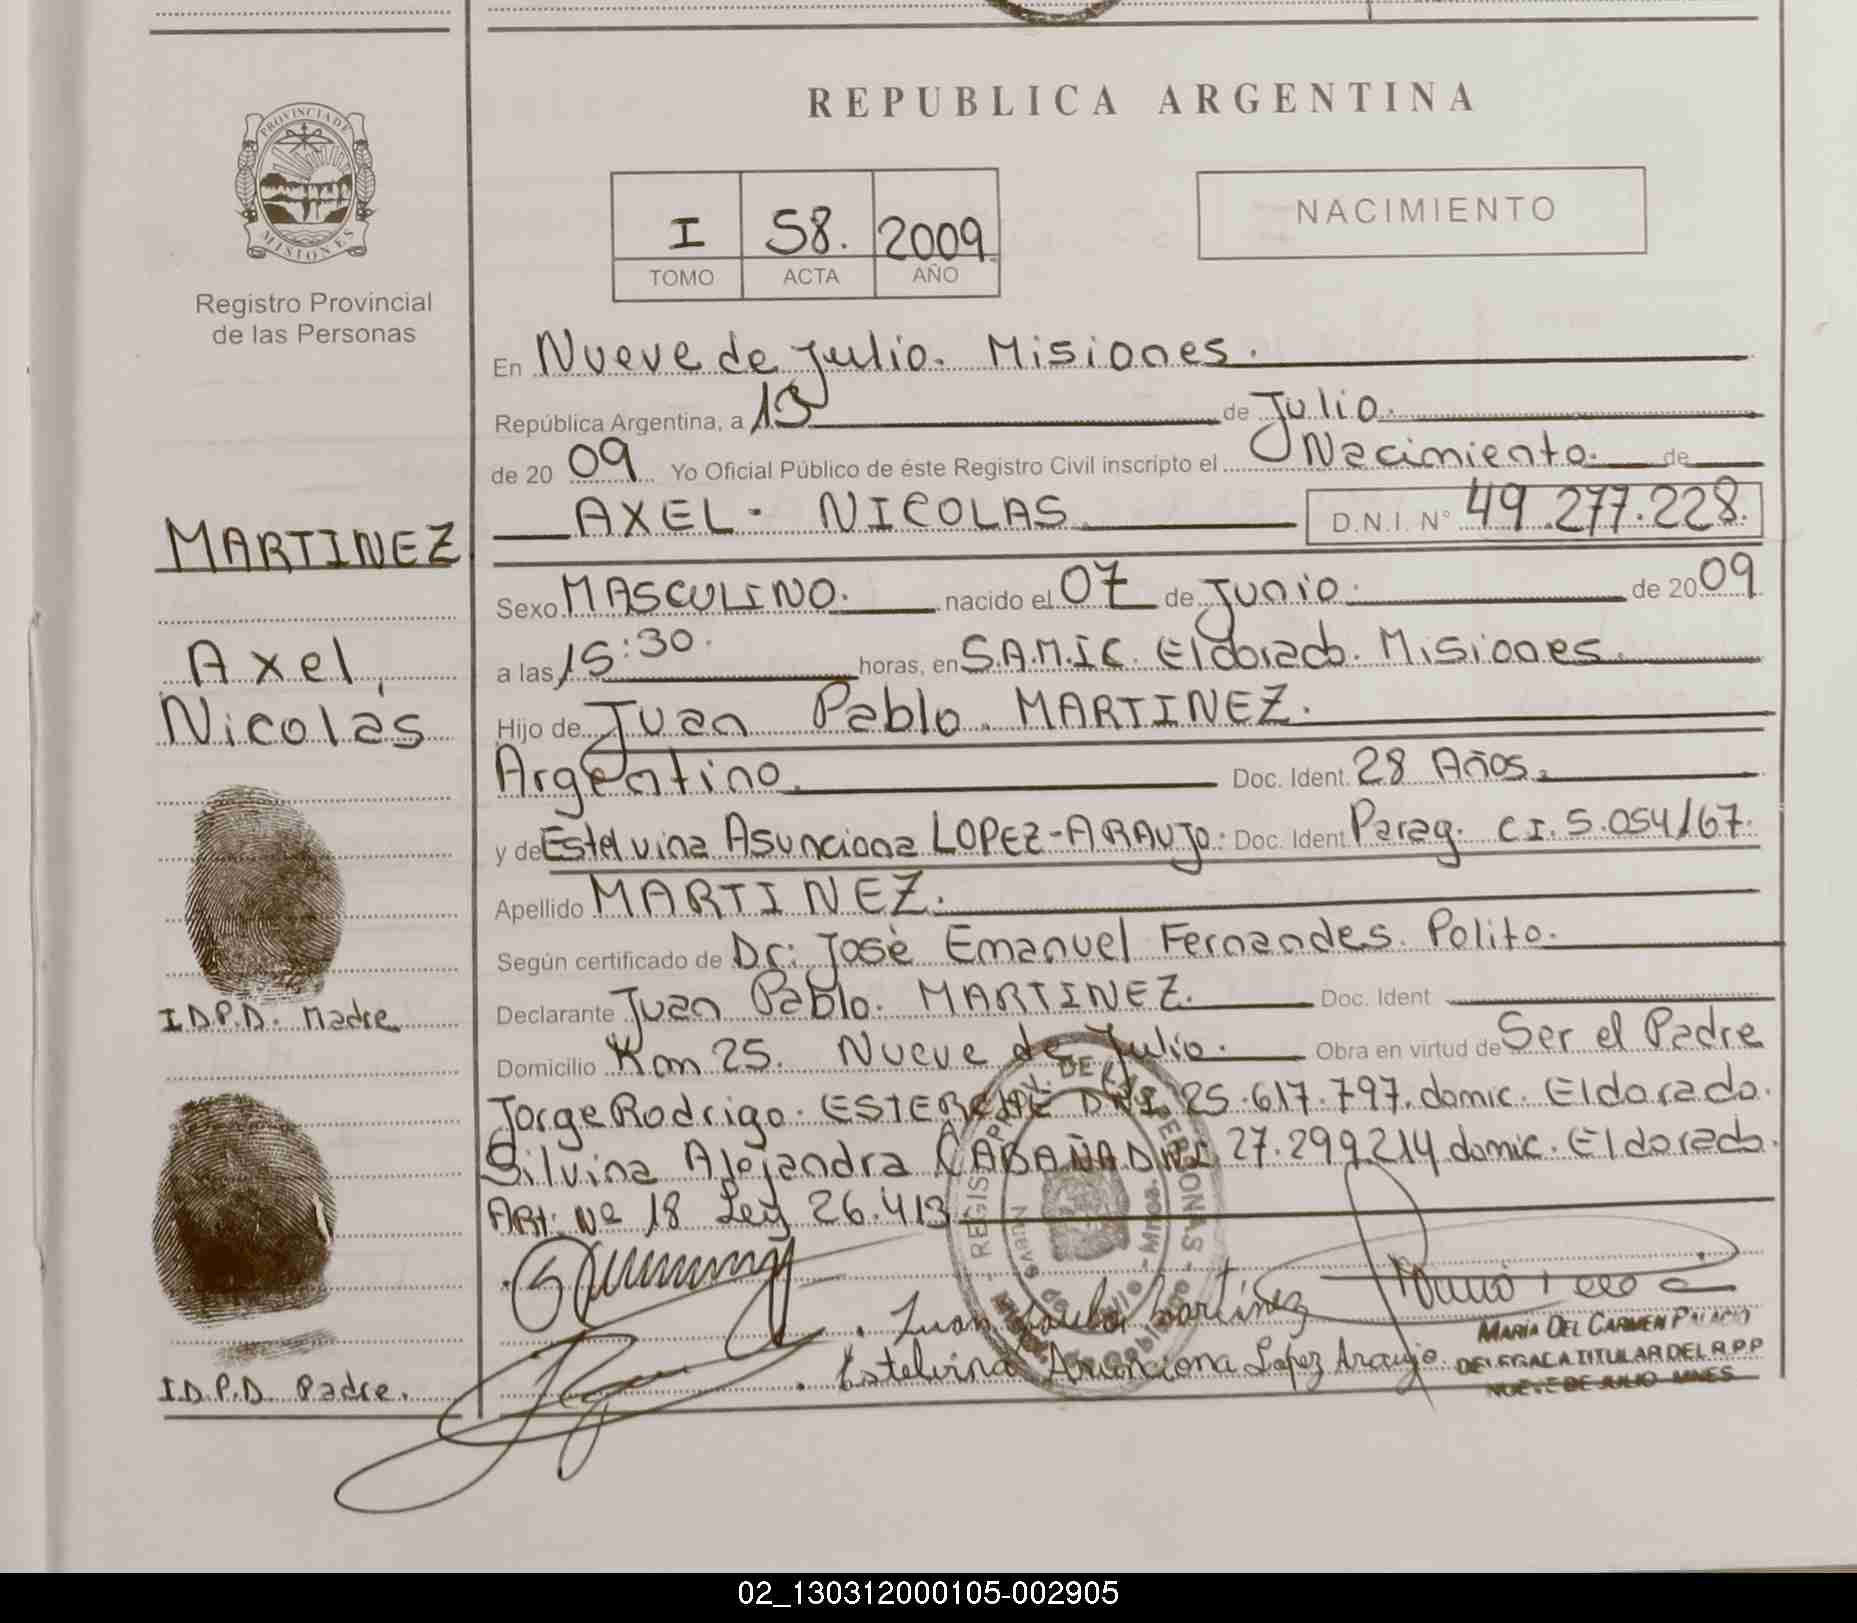 REPUBLICA ARGENTINA
PROVINCIA DE MISIONES
Registro Provincial
de las Personas
I 58. 2009.
TOMO ACTA AÑO
NACIMIENTO
En Nueve de Julio. Misiones.
República Argentina, a 13 de Julio.
de 20 09 Yo Oficial Público de éste Registro Civil inscripto el Nacimiento. de
AXEL. NICOLAS D.N.I. N° 49.277.228.
MARTINEZ
Axel,
Nicolás
Sexo MASCULINO. nacido el 07 de Junio. de 20 09
a las 15:30. horas, en S.A.M.I.C. Eldorado. Misiones.
Hijo de Juan Pablo. MARTINEZ.
Argentino. Doc. Ident. 28 Años.
y de Estelvina Asunciona LOPEZ-ARAUJO. Doc. Ident. Parag. C.I. 5.054/67.
Apellido MARTINEZ.
Según certificado de Dr: José Emanuel Fernandes. Polito.
Declarante Juan Pablo. MARTINEZ. Doc. Ident
Domicilio Km 25. Nueve de Julio. Obra en virtud de Ser el Padre
Jorge Rodrigo. DNI. 25.617.797. domic. Eldorado.
Silvina Alejandra CABAÑA DNI 27.299.214 domic. Eldorado.
Art. Nº 18 Ley 26.413
I.D.P.D. Madre
I.D.P.D. Padre.
Juan Pablo Martinez
Estelvina Asunciona Lopez Araujo.
MARIA DEL CARMEN PALACIO
DELEGADA TITULAR DEL R.P.P
NUEVE DE JULIO MNES
02_130312000105-002905